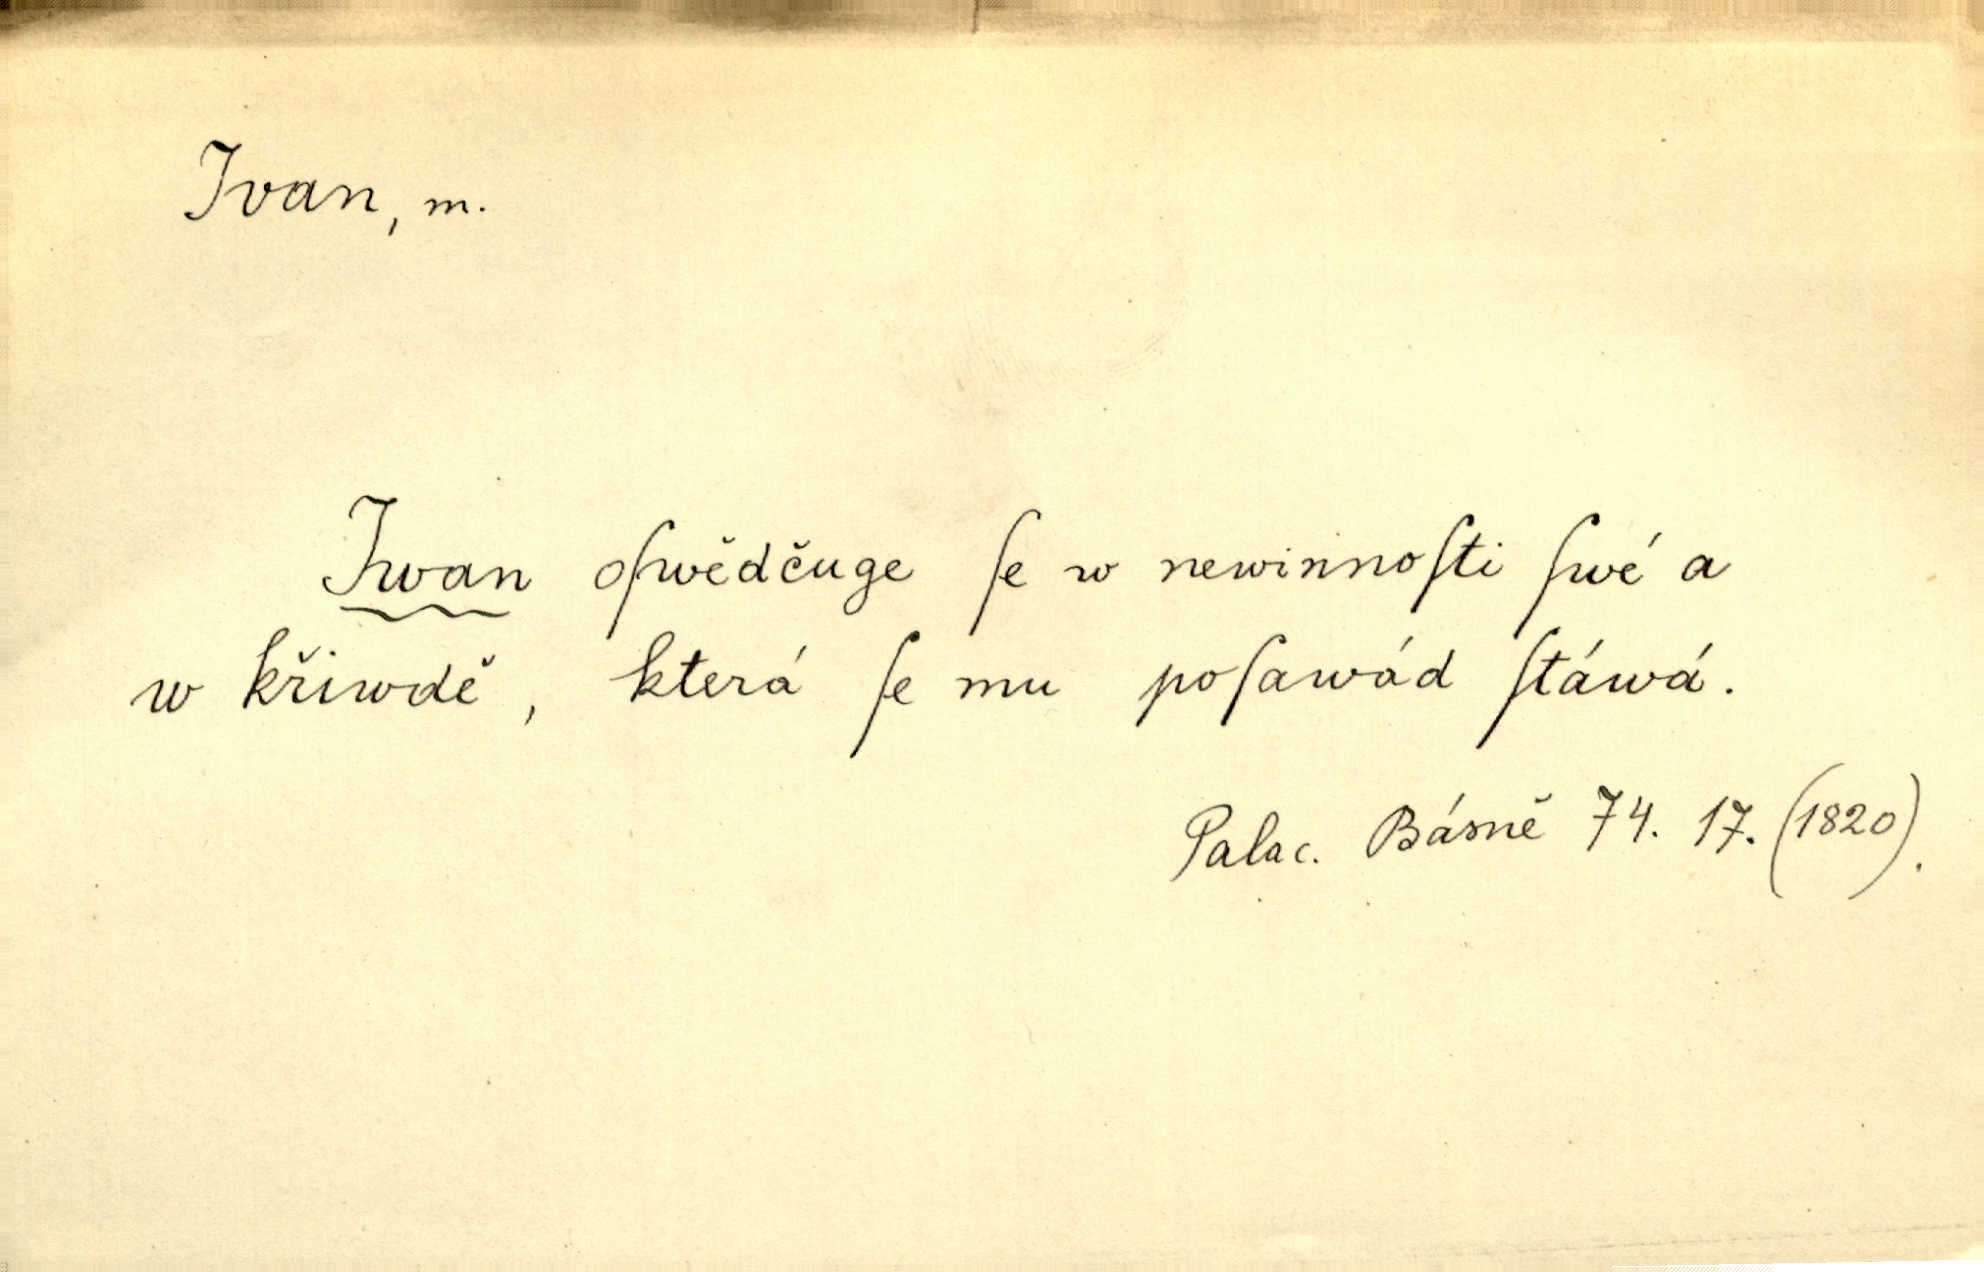 Ivan, m.
Iwan oſwědčuge ſe w newinnoſti ſwé a
w křiwdě, která ſe mu poſawád ſtáwá.
Palac. Básně 74. 17. (1820).